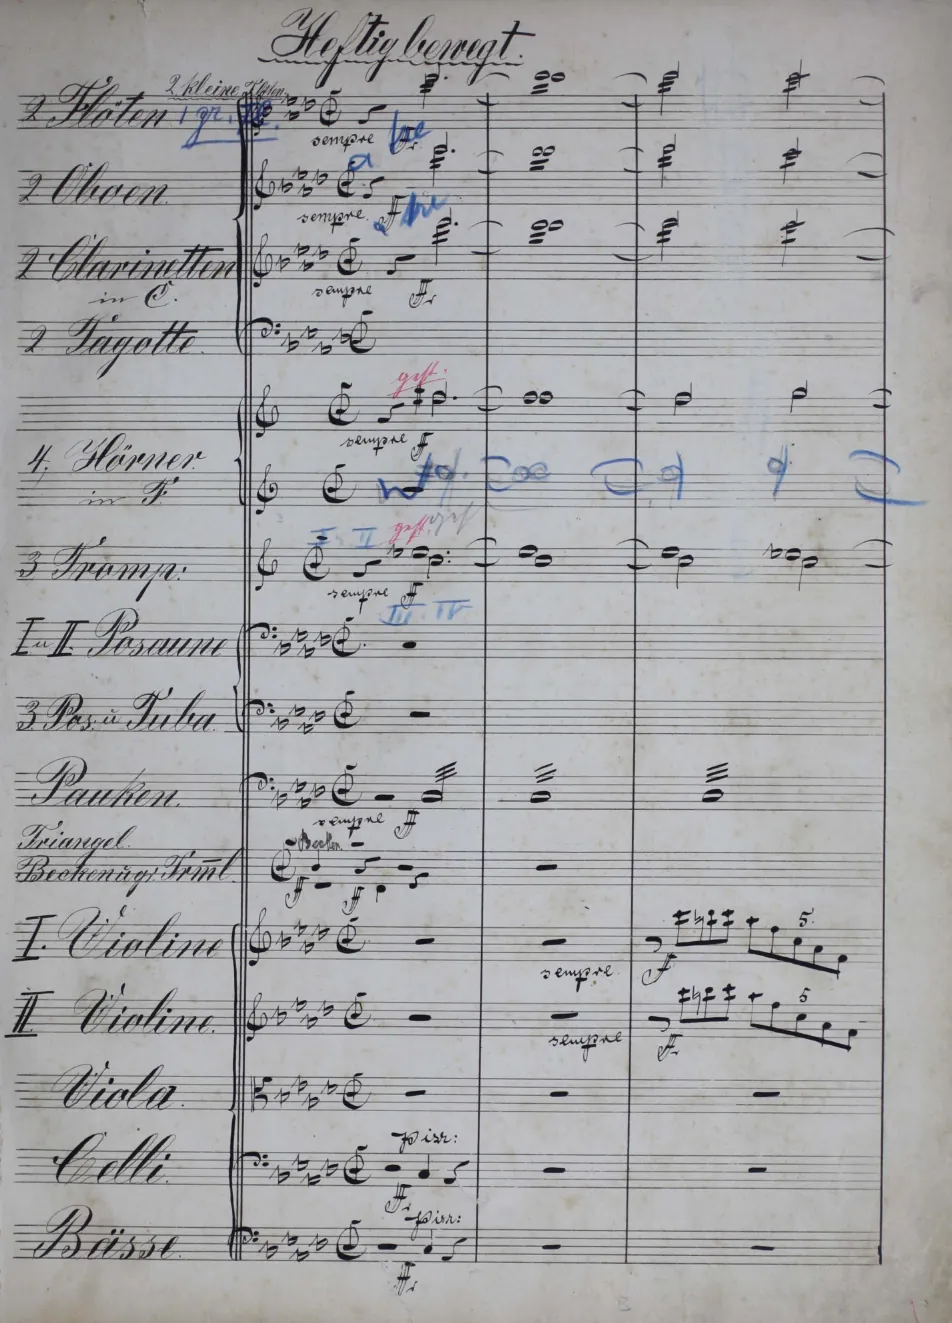 Heftig bewegt.
2 kleine Flöten
2 Flöten 1 gr.
sempre ff
2 Oboen. a
sempre. ff
2 Clarinetten
in C. sempre ff
2 Fagotte.
gest.
sempre ff
4 Hörner.
in F.
I II gest.
3 Tromp:
sempre ff
III IV
I u II Posaune
3. Pos. u Tuba.
Pauken.
sempre ff
Triangel. Becken.
Becken u gr. Trml.
ff ff
I. Violine 5.
sempre ff
II Violine. 5
sempre ff
Viola.
pizz:
Celli.
ff
pizz:
Bässe.
ff